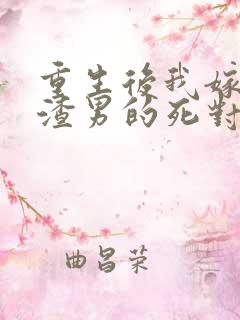 重生後我嫁
渣男的死對
曲昌荣